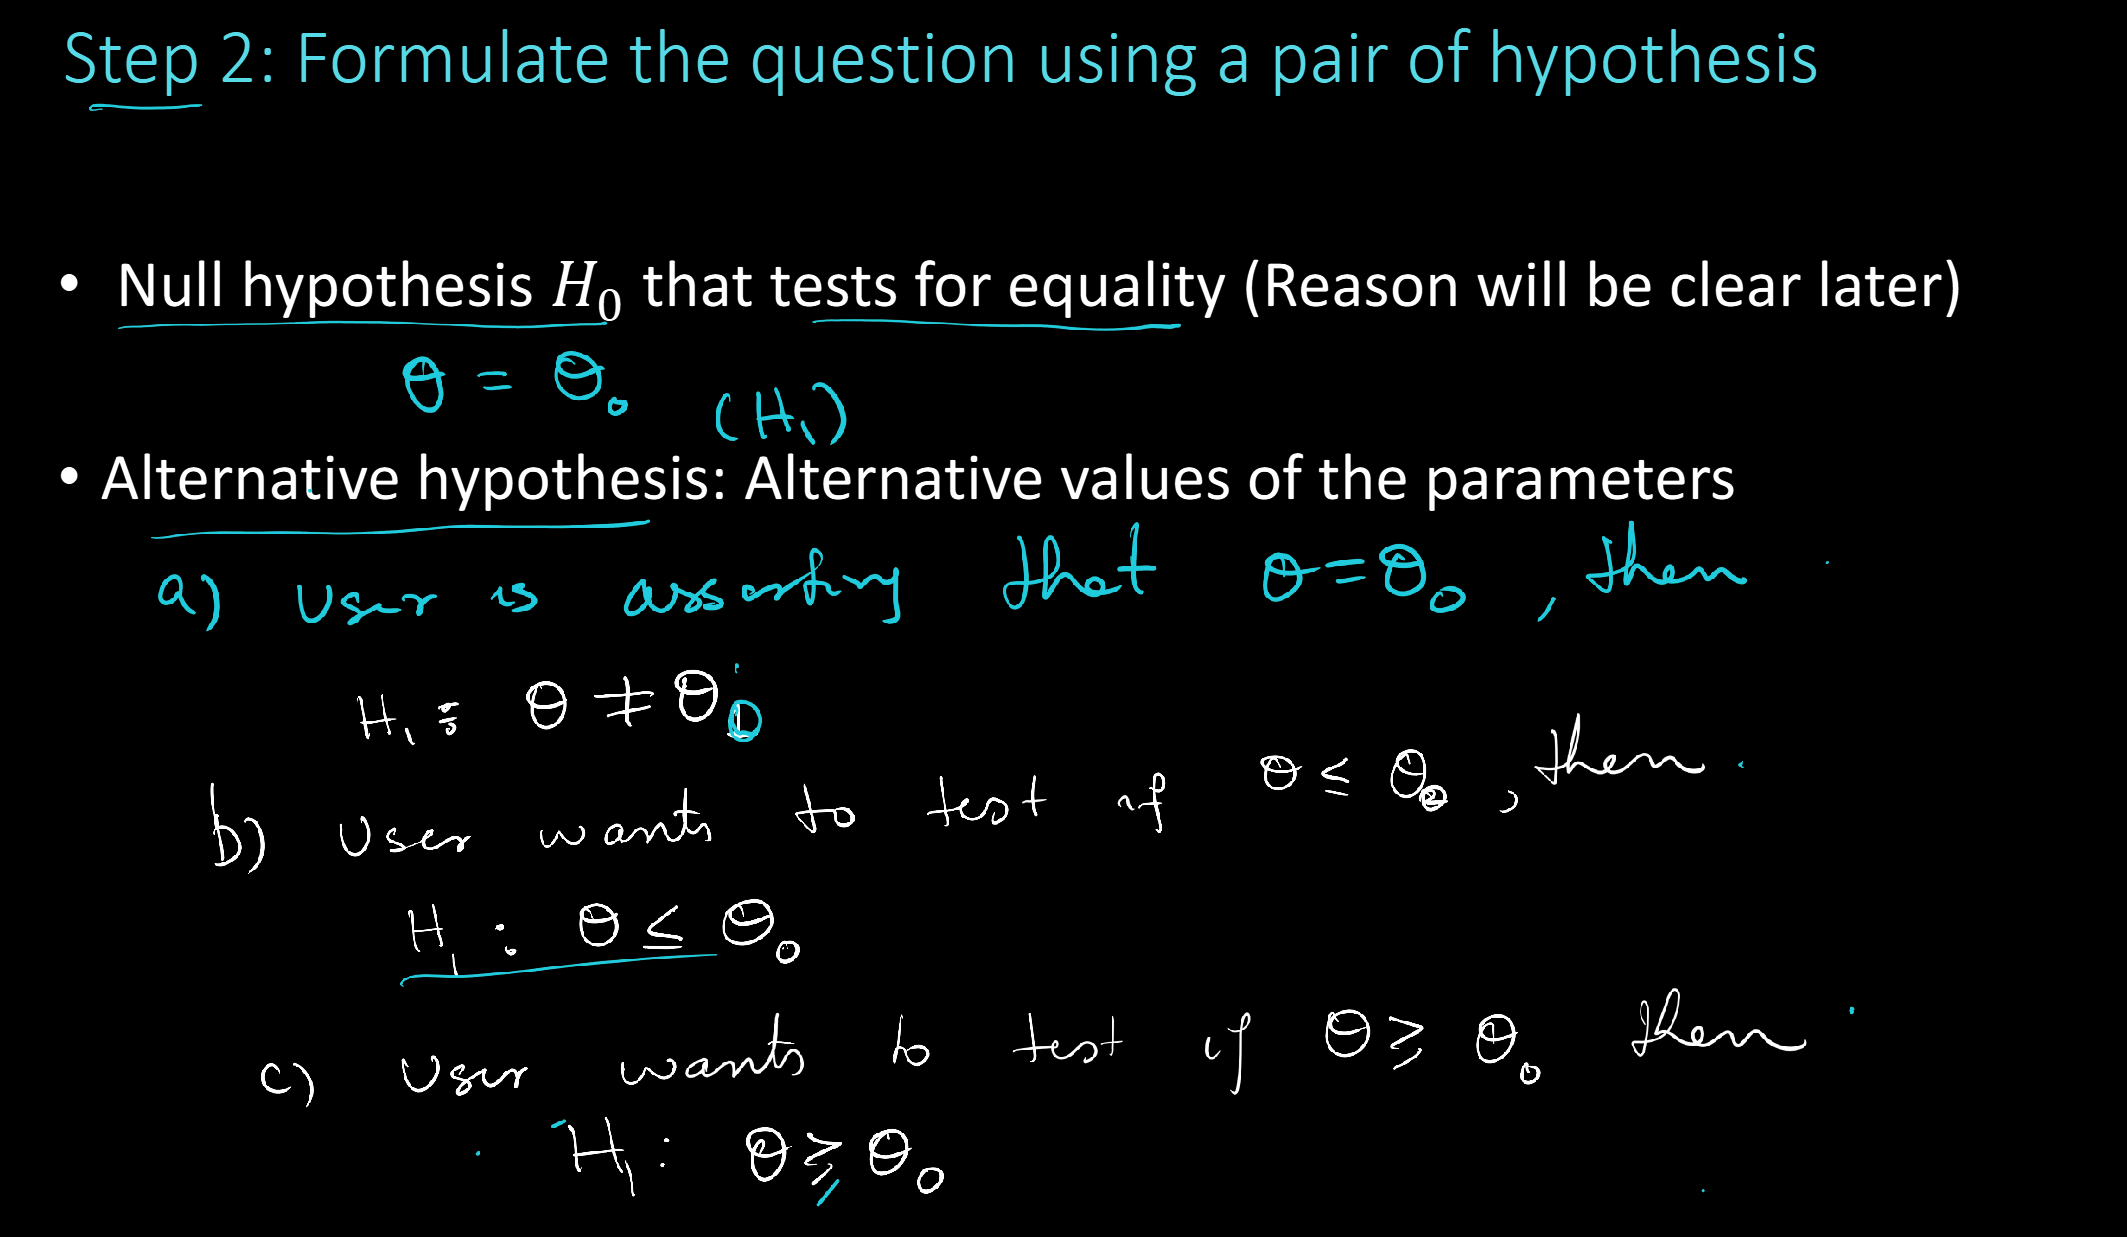 Step 2: Formulate the question using a pair of hypothesis
• Null hypothesis H₀ that tests for equality (Reason will be clear later)
θ = θ₀
(H₁)
• Alternative hypothesis: Alternative values of the parameters
a) User is asserting that θ = θ₀, then
H₁: θ ≠ θ₀
b) User wants to test if θ ≤ θ₀, then
H₁: θ ≤ θ₀
c) User wants to test if θ ≥ θ₀ then
H₁: θ ≥ θ₀